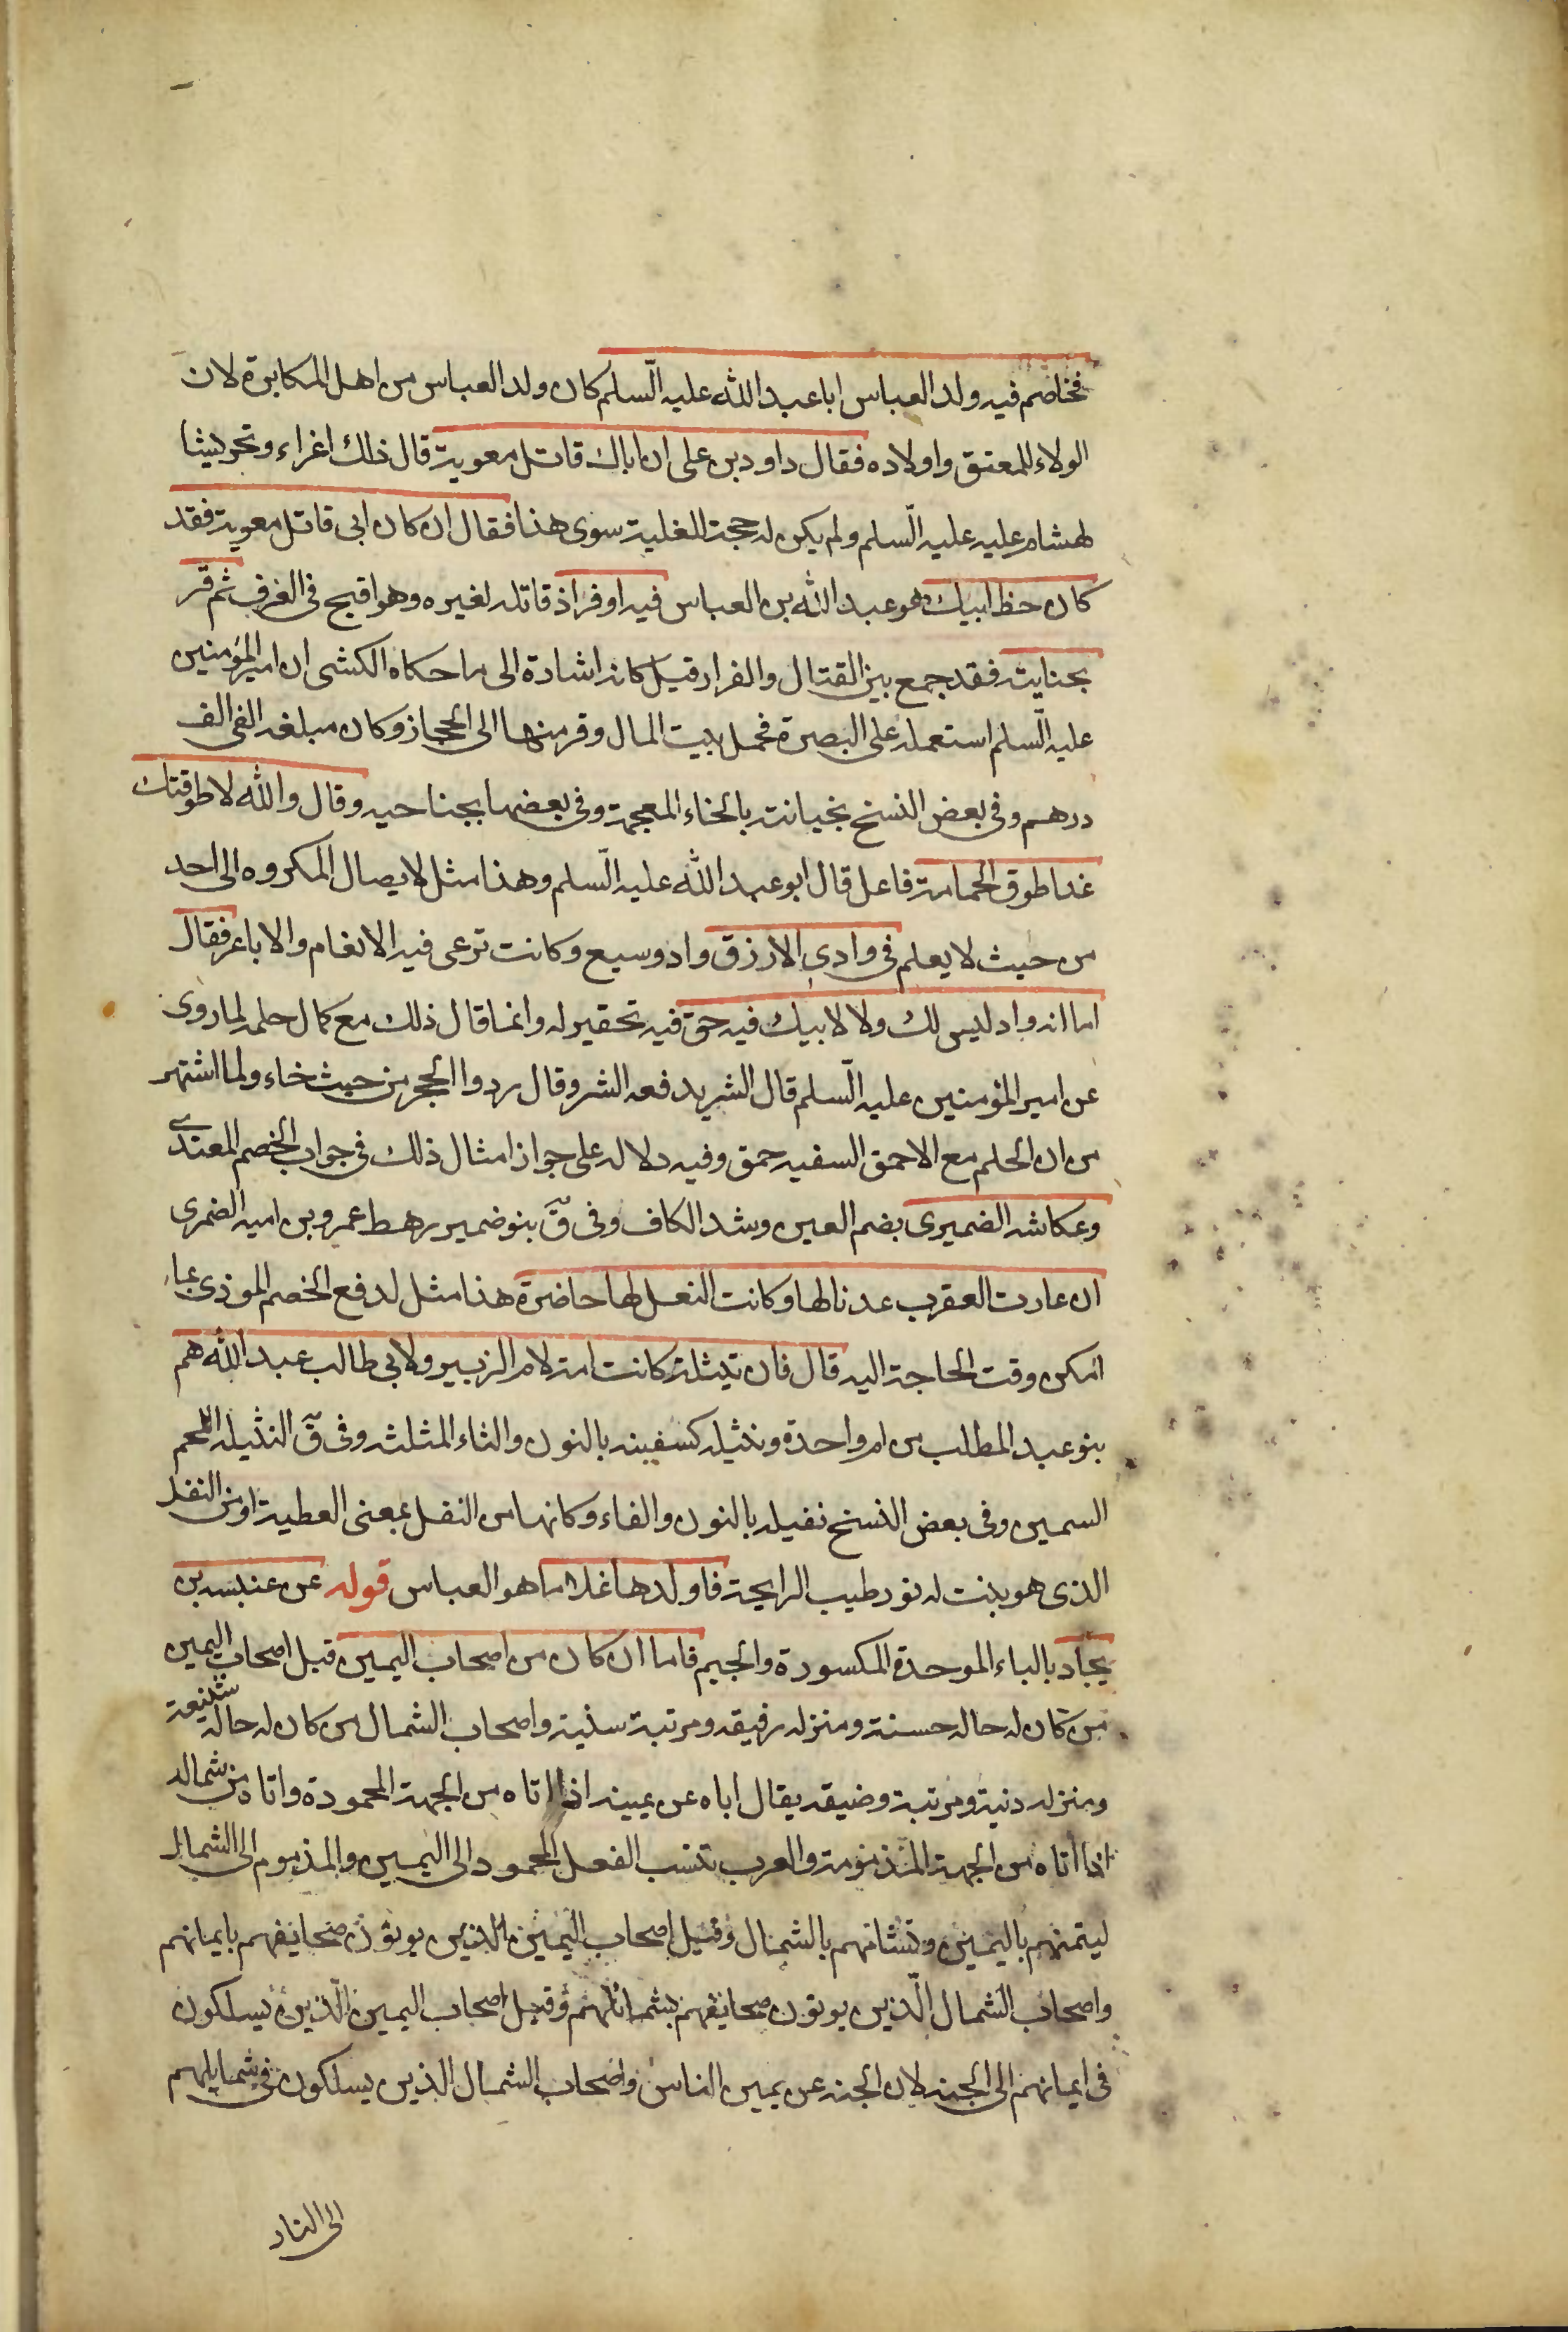 فخاصم فيه ولد العباس ابا عبد الله عليه السلم كان ولد العباس من اهل المكابرة لان
الولاء للمعتق واولاده فقال داود بن على ان اباك قاتل معوية قال ذلك اغراء وتحريشا
لهشام عليه عليه السلم ولم يكن له حجة للغلبة سوى هذا فقال ان كان ابى قاتل معوية فقد
كان حظ ابيك وهو عبد الله بن العباس فيه اوفر اذ قاتله لغيره وهو اقبح فى العرف ثم فر
بجنايته فقد جمع بين القتال والفرار قيل كانه اشارة الى ما حكاه الكشى ان امير المؤمنين
عليه السلم استعمله على البصرة فحمل بيت المال وفر منها الى الحجاز وكان مبلغه الفى الف
درهم وفى بعض النسخ بخيانته بالخاء المعجمة وفى بعضها بجناحيه وقال والله لاطوقنك
غدا طوق الحمامة فاعل قال ابو عبد الله عليه السلم وهذا مثل لايصال المكروه الى احد
من حيث لا يعلم فى وادى الازرق واد وسيع وكانت ترعى فيه الانعام والاباعر فقال
اما انه واد ليس لك ولا لابيك فيه حق فيه تحقير له وانما قال ذلك مع كمال حلمه لما روى
عن امير المؤمنين عليه السلم قال الشر يدفعه الشر وقال ردوا الحجر من حيث جاء ولما اشتهر
من ان الحلم مع الاحمق السفيه حمق وفيه دلاله على جواز امثال ذلك فى جواب الخصم المعتدى
وعكاشه الضميرى بضم العين وشد الكاف وفى ق بنو ضمير رهط عمرو بن اميه الضمرى
ان عادت العقرب عدنا لها وكانت النعل لها حاضرة هذا مثل لدفع الخصم الموذى بما
امكن وقت الحاجة اليه قال فان نثيلة كانت امة لام الزبير ولابى طالب وعبد الله هم
بنو عبد المطلب من ام واحدة ونثيله كسفينه بالنون والثاء المثلثه وفى ق النثيله اللحم
السمين وفى بعض النسخ نفيله بالنون والفاء وكانها من النفل بمعنى العطية او من النفل
الذى هو بنت له نور طيب الرايحة فاولدها غلاما هو العباس قوله عن عنبسه بن
بجاد بالباء الموحدة المكسورة والجيم فاما ان كان من اصحاب اليمين قيل اصحاب اليمين
من كان له حاله حسنة ومنزله رفيقه ومرتبة سنية واصحاب الشمال من كان له حاله شنيعة
ومنزله دنية ومرتبة وضيقه يقال اباه عن يمينه اذا اتاه من الجهة المحمودة واتاه من شماله
اذا اتاه من الجهة المذمومة والعرب تنسب الفعل المحمود الى اليمين والمذموم الى الشمال
ليتمنهم باليمين وتشائمهم بالشمال وقيل اصحاب اليمين الذين يوتون صحايفهم بايمانهم
واصحاب الشمال الذين يوتون صحايفهم بشمائلهم وقيل اصحاب اليمين الذين يسلكون
فى ايمانهم الى الجنه لان الجنه عن يمين الناس واصحاب الشمال الذين يسلكون فى شمايلهم
الى النار